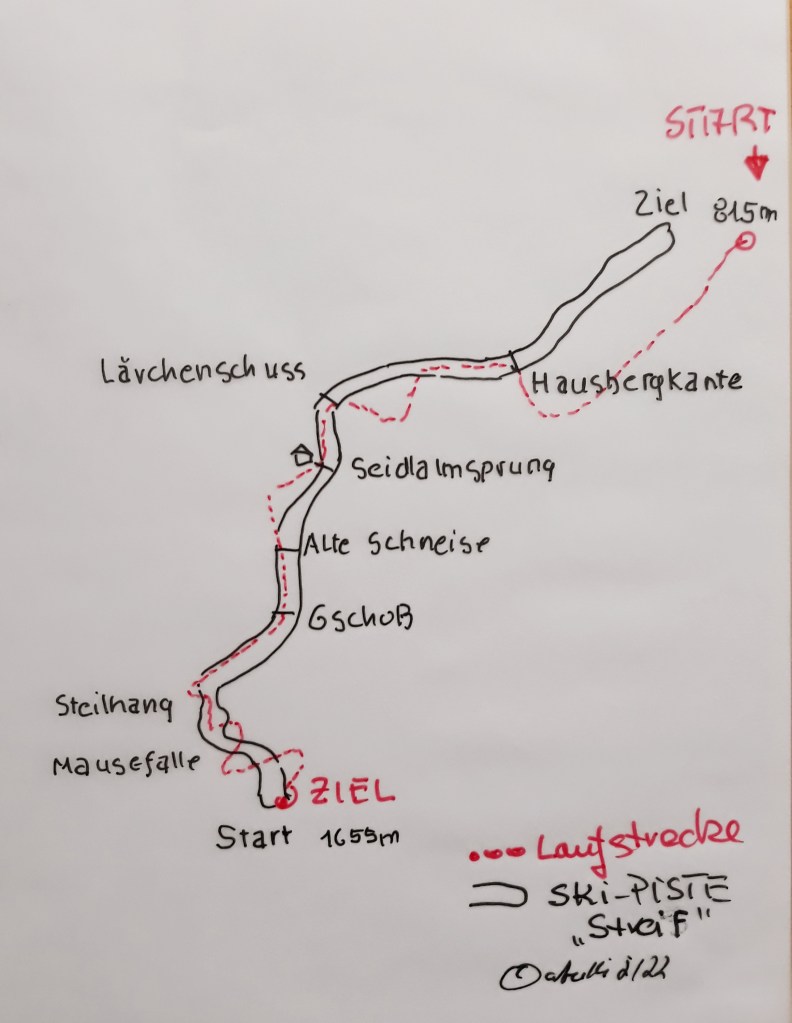 START
Ziel 815m
Lärchenschuss
Hausbergkante
Seidlalmsprung
Alte Schneise
Gschoß
Steilhang
Mausefalle
ZIEL
Start 1655m
Laufstrecke
SKi-PiSTE
„Streif"